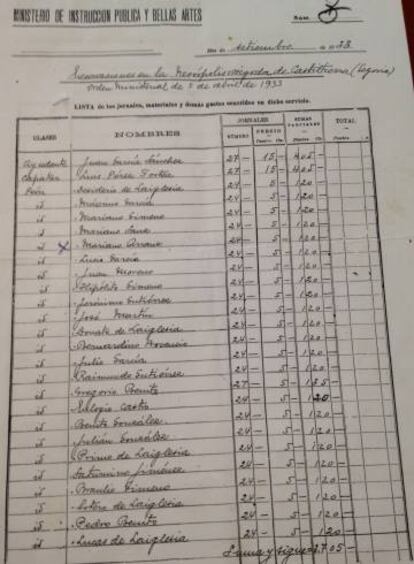 MINISTERIO DE INSTRUCCIÓN PUBLICA Y BELLAS ARTES
Núm. 8
Mes de setiembre de 1933
Excavaciones en la Necrópolis visigoda de Castiltierra (Segovia)
Orden Ministerial de 5 de abril de 1933
LISTA de los jornales, materiales y demás gastos ocurridos en dicho servicio.
CLASES NOMBRES JORNALES SUMAS PARCIALES TOTAL
NÚMERO PRECIO
Ayudante Juan García Sánchez 27 15 405
Capataz Luis Pérez Fortea 27 15 405
Peón Desiderio de Laiglesia 24 5 120
id Máximo García 24 5 120
id Mariano Gimeno 24 5 120
id Mariano Sanz 24 5 120
id x Mariano Arranz 24 5 120
id Lucio García 24 5 120
id Juan Moreno 24 5 120
id Hipólito Gimeno 24 5 120
id Jerónimo Gutiérrez 24 5 120
id José Martín 24 5 120
id Donato de Laiglesia 24 5 120
id Bernardino 24 5 120
id Julio García 24 5 120
id Raimundo Gutiérrez 24 5 120
id Gregorio Benito 27 5 135
id Eulogio Castro 24 5 120
id Benito González 24 5 120
id Julián González 24 5 120
id Primo de Laiglesia 24 5 120
id Saturnino Jiménez 24 5 120
id Braulio Gimeno 24 5 120
id Sotero de Laiglesia 24 5 120
id Pedro Benito 24 5 120
id Lucas de Laiglesia 24 5 120
Suma y sigue 3.705